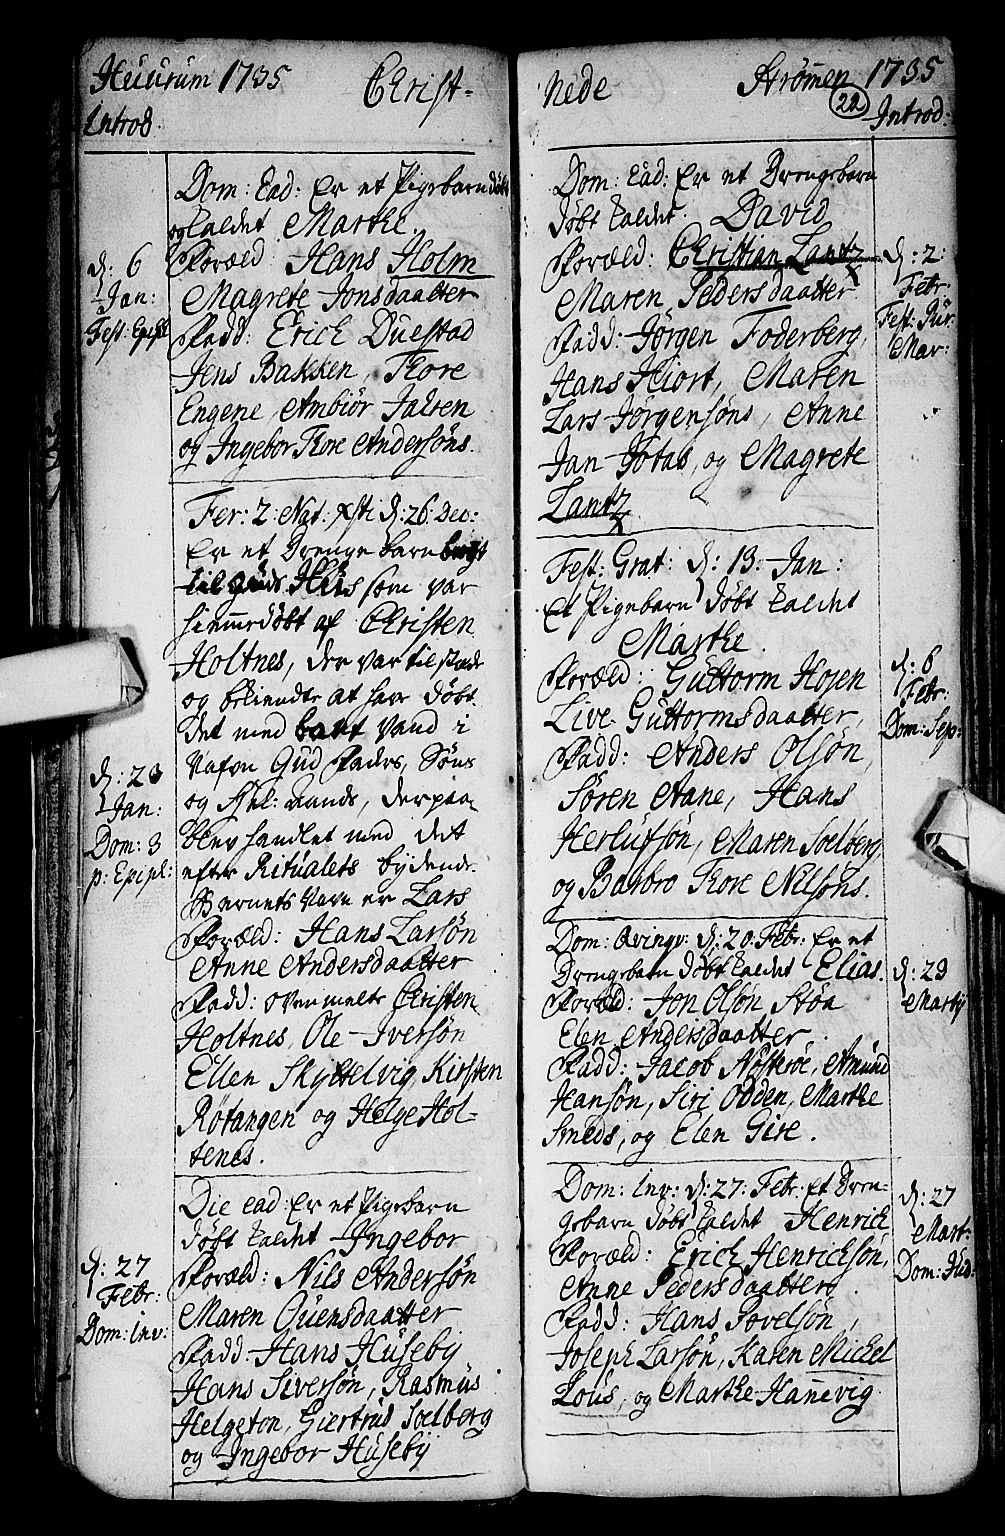 Huurum 1735 Christ-
Introd.
Dom: Ead: Er et Pigebarn døbt
og kaldet Marthe.
Foræld: Hans Holm
Magrete Jonsdaatter
Fadd: Erich Duestad
Jens Bakken, Thore
Engene, Ambiør Jalsen
og Ingebor Thore Andersøns.
d: 6
Jan:
Fest: Epiph
Fer: 2. Nat: xsti d: 26. Dec:
Er et Drenge barn bragt
til Guds Huus som var
hiemmedøbt af Christen
Holtnes, der var tilstæde
og bekiendte at have døbt
det med bart Vand i
Nafn Gud Faders, Søns
og hel: Aands, derpaa
blev handlet med det
efter Ritualets bydende.
Bernets Navn er Lars
Foræld: Hans Larsøn
Anne Andersdaatter
Fadd: ovenmelte Christen
Holtnes, Ole Iversøn
Ellen Skyttelvig, Kirsten
Røtangen og Helge Hol-
tenes.
d: 23
Jan:
Dom: 3
p: Epiph:
Die ead: Er et Pigebarn
døbt kaldet Ingebor
Foræld: Nils Andersøn
Maren Ouensdaatter
Fadd: Hans Huseby
Hans Siversøn, Rasmus
Helgeton, Giertrud Solberg
og Ingebor Huseby
d: 27
Febr:
Dom: Inv:
nede Strømen 1735
22
Introd:
Dom: Ead: Er et Drengebarn
døbt kaldet David
Foræld: Christian Lantz
Maren Pedersdaatter
Fadd: Jørgen Foderberg,
Hans Hiort, Maren
Lars Jørgensøns, Anne
Jan Jotas, og Magrete
Lantz
d: 2:
Febr:
Fest: Pur:
Mar:
Fest: Grat: d: 13. Jan:
Et Pigebarn døbt kaldet
Marthe.
Foræld: Guttorm Hojen
Live Guttormsdaatter,
Fadd: Anders Olsøn,
Søren Aane, Hans
Herlufsøn, Maren Solberg
og Barbro Thore Nilsøns.
d: 6
Febr:
Dom: Sep:
Dom: Qvinqv: d: 20. Febr: Er et
Drengebarn døbt kaldet Elias.
Foræld: Jon Olsøn Støa
Elen Andersdaatter.
Fadd: Jacob Nøsterøe, Amund
Hansøn, Siri Odden, Marthe
Smeds, og Elen Gire.
d: 29
Martij
Dom: Inv: d: 27: Febr: Et Dren-
gebarn døbt kaldet Henrich
Foræld: Erich Henrichsøn,
Anne Pedersdaatter
Fadd: Hans Povelsøn,
Joseph Larsøn, Karen Michel
Lous, og Marthe Hannevig.
d: 27
Mart:
Dom: Jud: